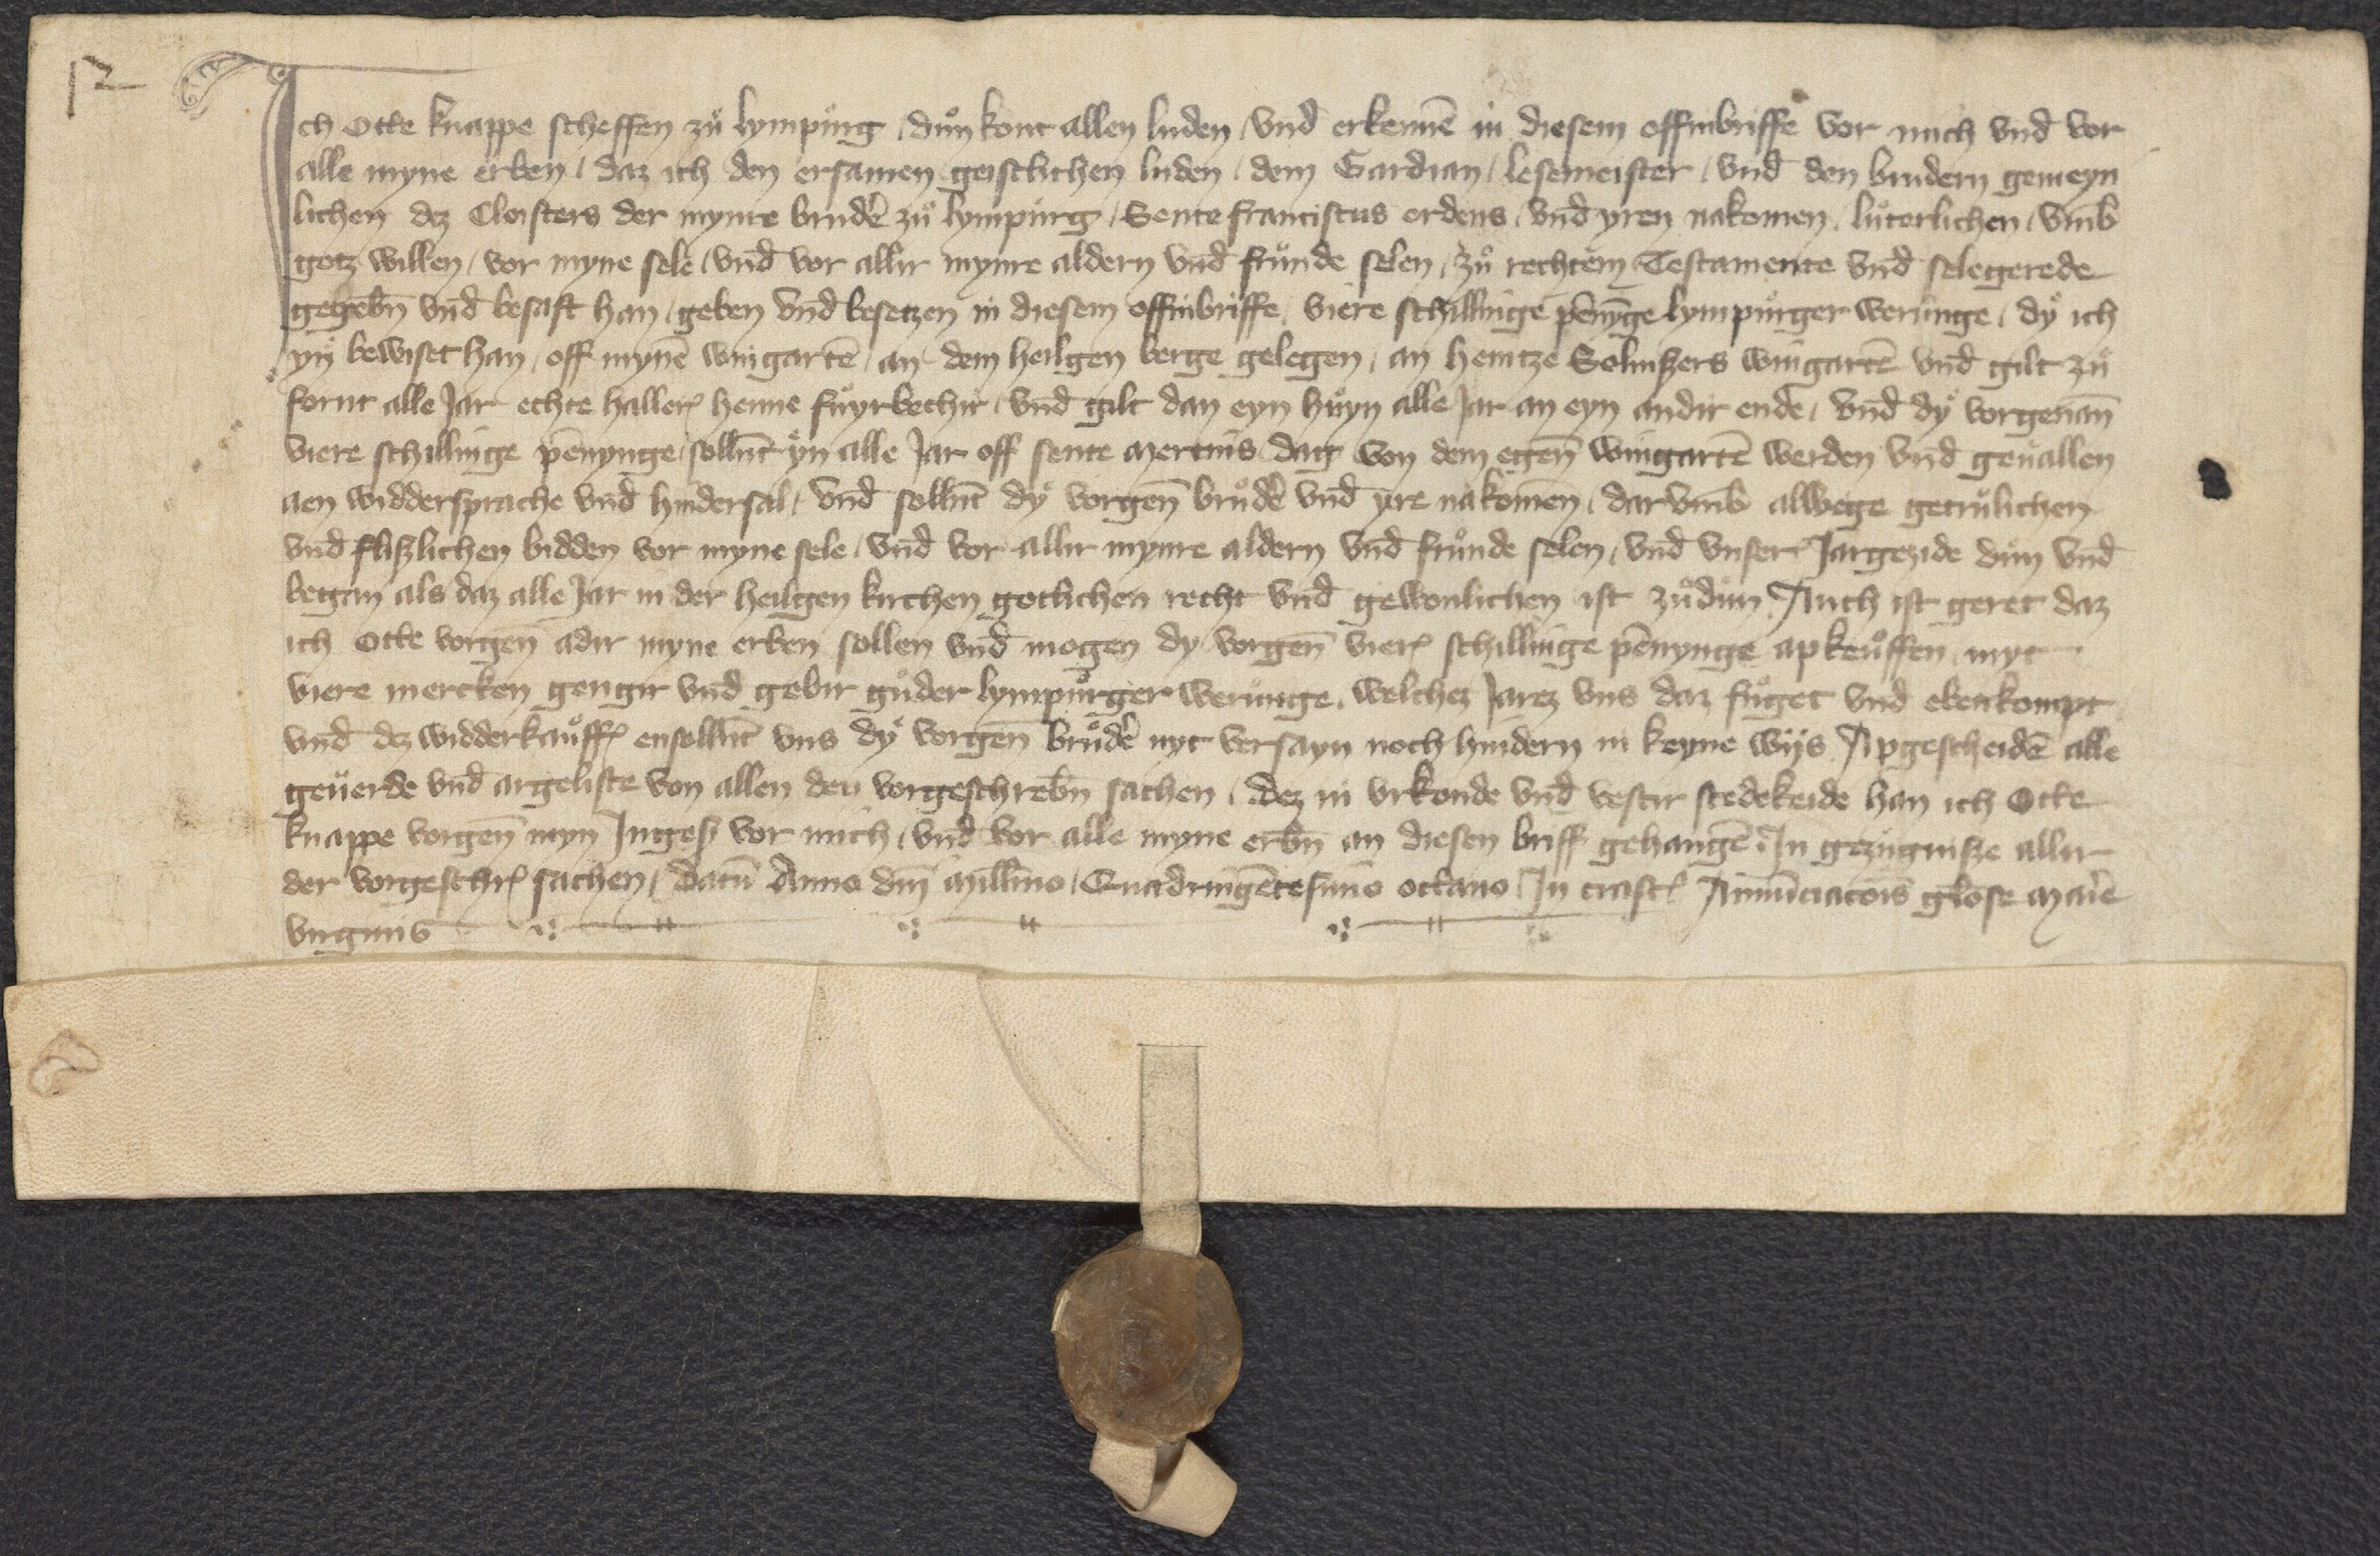 12
Ich Otte knappe scheffen zuͦ lympuͤrg, duͦn kont allen luden, vnd̄ erkennē in diesem offinbriffe vor mich vnd̄ vor
alle myne erben, daz ich den ersamen geistlichen luden, dem Gardian, lesemeister, vnd̄ den brudern gemeyn
lichen dez Cloisters der mynre brudẽ zuͦ lympuͤrg, Sente franciscus ordens, vnd̄ yren nakomen, luͤterlichen, vm̄b
gotz willen, vor myne sele, vnd̄ vor allir mynre aldern vnd̄ fruͤnde selen, zuͦ rechtem Testamente vnd̄ selegerede
gegebn̄ vnd̄ besast han, geben vnd̄ besetzen in diesem offinbriffe, viere schillinge pēnȳge lympuͤrger weruͤnge, dẏ ich
ẏn bewiset han, off mynē wingartē, an dem heilgen berge gelegen, an heintze Solmszers wingartē vnd̄ gilt zuͦ
fornt alle Jar echte hallerꝭ henne fuͤyrbechir, vnd̄ gilt dan eyn huͤyn alle Jar an eyn andir ende, vnd̄ dẏ vorgenan̄
viere schillinge pēnynge, sollnt̄ ẏn alle Jar off sente mertins dag von dem egen̄ wingartē werden vnd̄ geuallen
aen widdersprache vnd̄ hindersal, vnd̄ sollnt̄ dẏ vorgen̄ bruͦdẽ vnd̄ yre nakomen̄, darvm̄b allwege getruͤlichen
vnd̄ fliszlichen bidden vor myne sele, vnd̄ vor allir mynre aldern vnd̄ fruͤnde selen, vnd̄ vnser Jargezide duͦn vnd̄
began als daz alle Jar in der heilgen kirchen gotlichen recht vnd̄ gewonlichen ist zuͦduͦn, Auch ist geret daz
ich Otte vorgen̄ adir myne erben sollen vnd̄ mogen dy vorgen̄ vierꝭ schillinge pēnynge apkeuͦffen, myt
viere mercken gengir vnd̄ gebir guͦder lympuͤrger weruͤnge, welchez Jarez vns daz fuͦget vnd̄ ebenkompt
vnd̄ dez widderkauͦffꝭ ensollnt̄ vns dẏ vorgen̄ bruͦdẽ nyt versayn noch hindern in keyne wijs, Apgescheidē alle
geuerde vnd̄ argeliste von allen den vorgeschrebn̄ sachen, dez in vrkonde vnd̄ vestir stedekeide han ich Otte
knappe vorgen̄ myn Ingesꝭ vor mich, vnd̄ vor alle myne erbn̄ an diesen briff gehangē, In gezuͤgnisze allir
der vorgeschrꝭ sachen, Datū Anno dn̄i millīno, Quadringētesimo octauo, In crastꝭ Annūciacōis glōse maīe
virginis